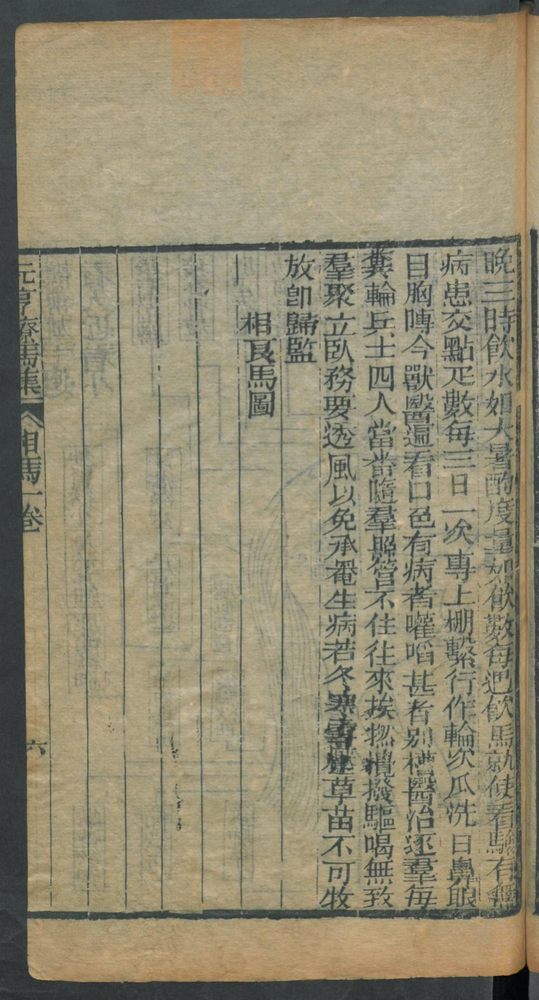 晚三時飲水如大暑酌度量加飲數每遇飲馬就使看驗有無
病患交點疋數每三日一次專上棚繫行作輪次瓜洗日鼻眼
目胸嗉今獸醫遍看口色有病者嚾啗甚者別槽醫治逐羣每
糞輪兵士四人當番隨羣照管不住往來挨揔攪撥驅喝無致
羣聚立臥務要透風以免承罨生病若冬寒草苗不可牧
放卽歸監
相良馬圖
元亨療馬集 相馬一卷 六